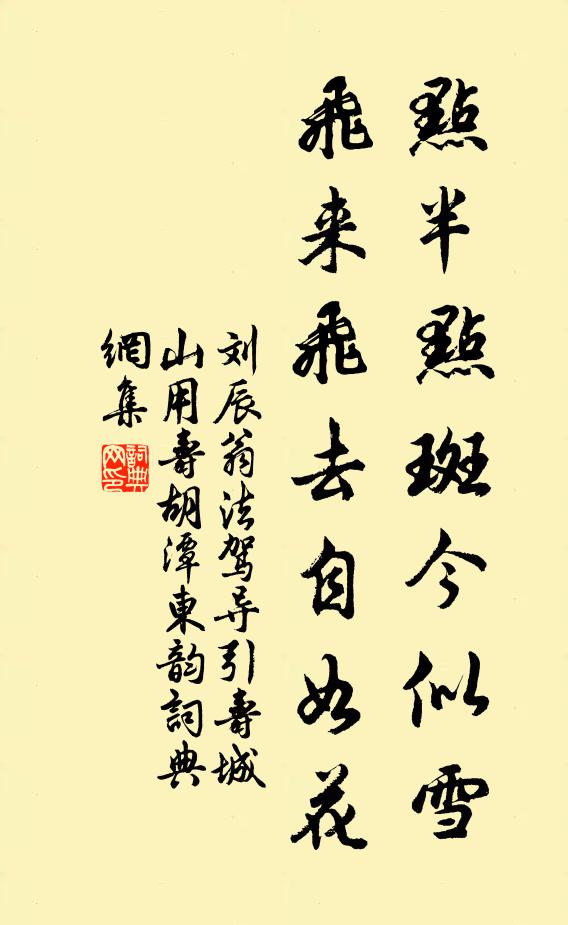 點半點斑今似雪
飛来飛去自如花
刘辰翁法駕导引壽城
山用壽胡潭東韵詞典
網集
詞典
网印